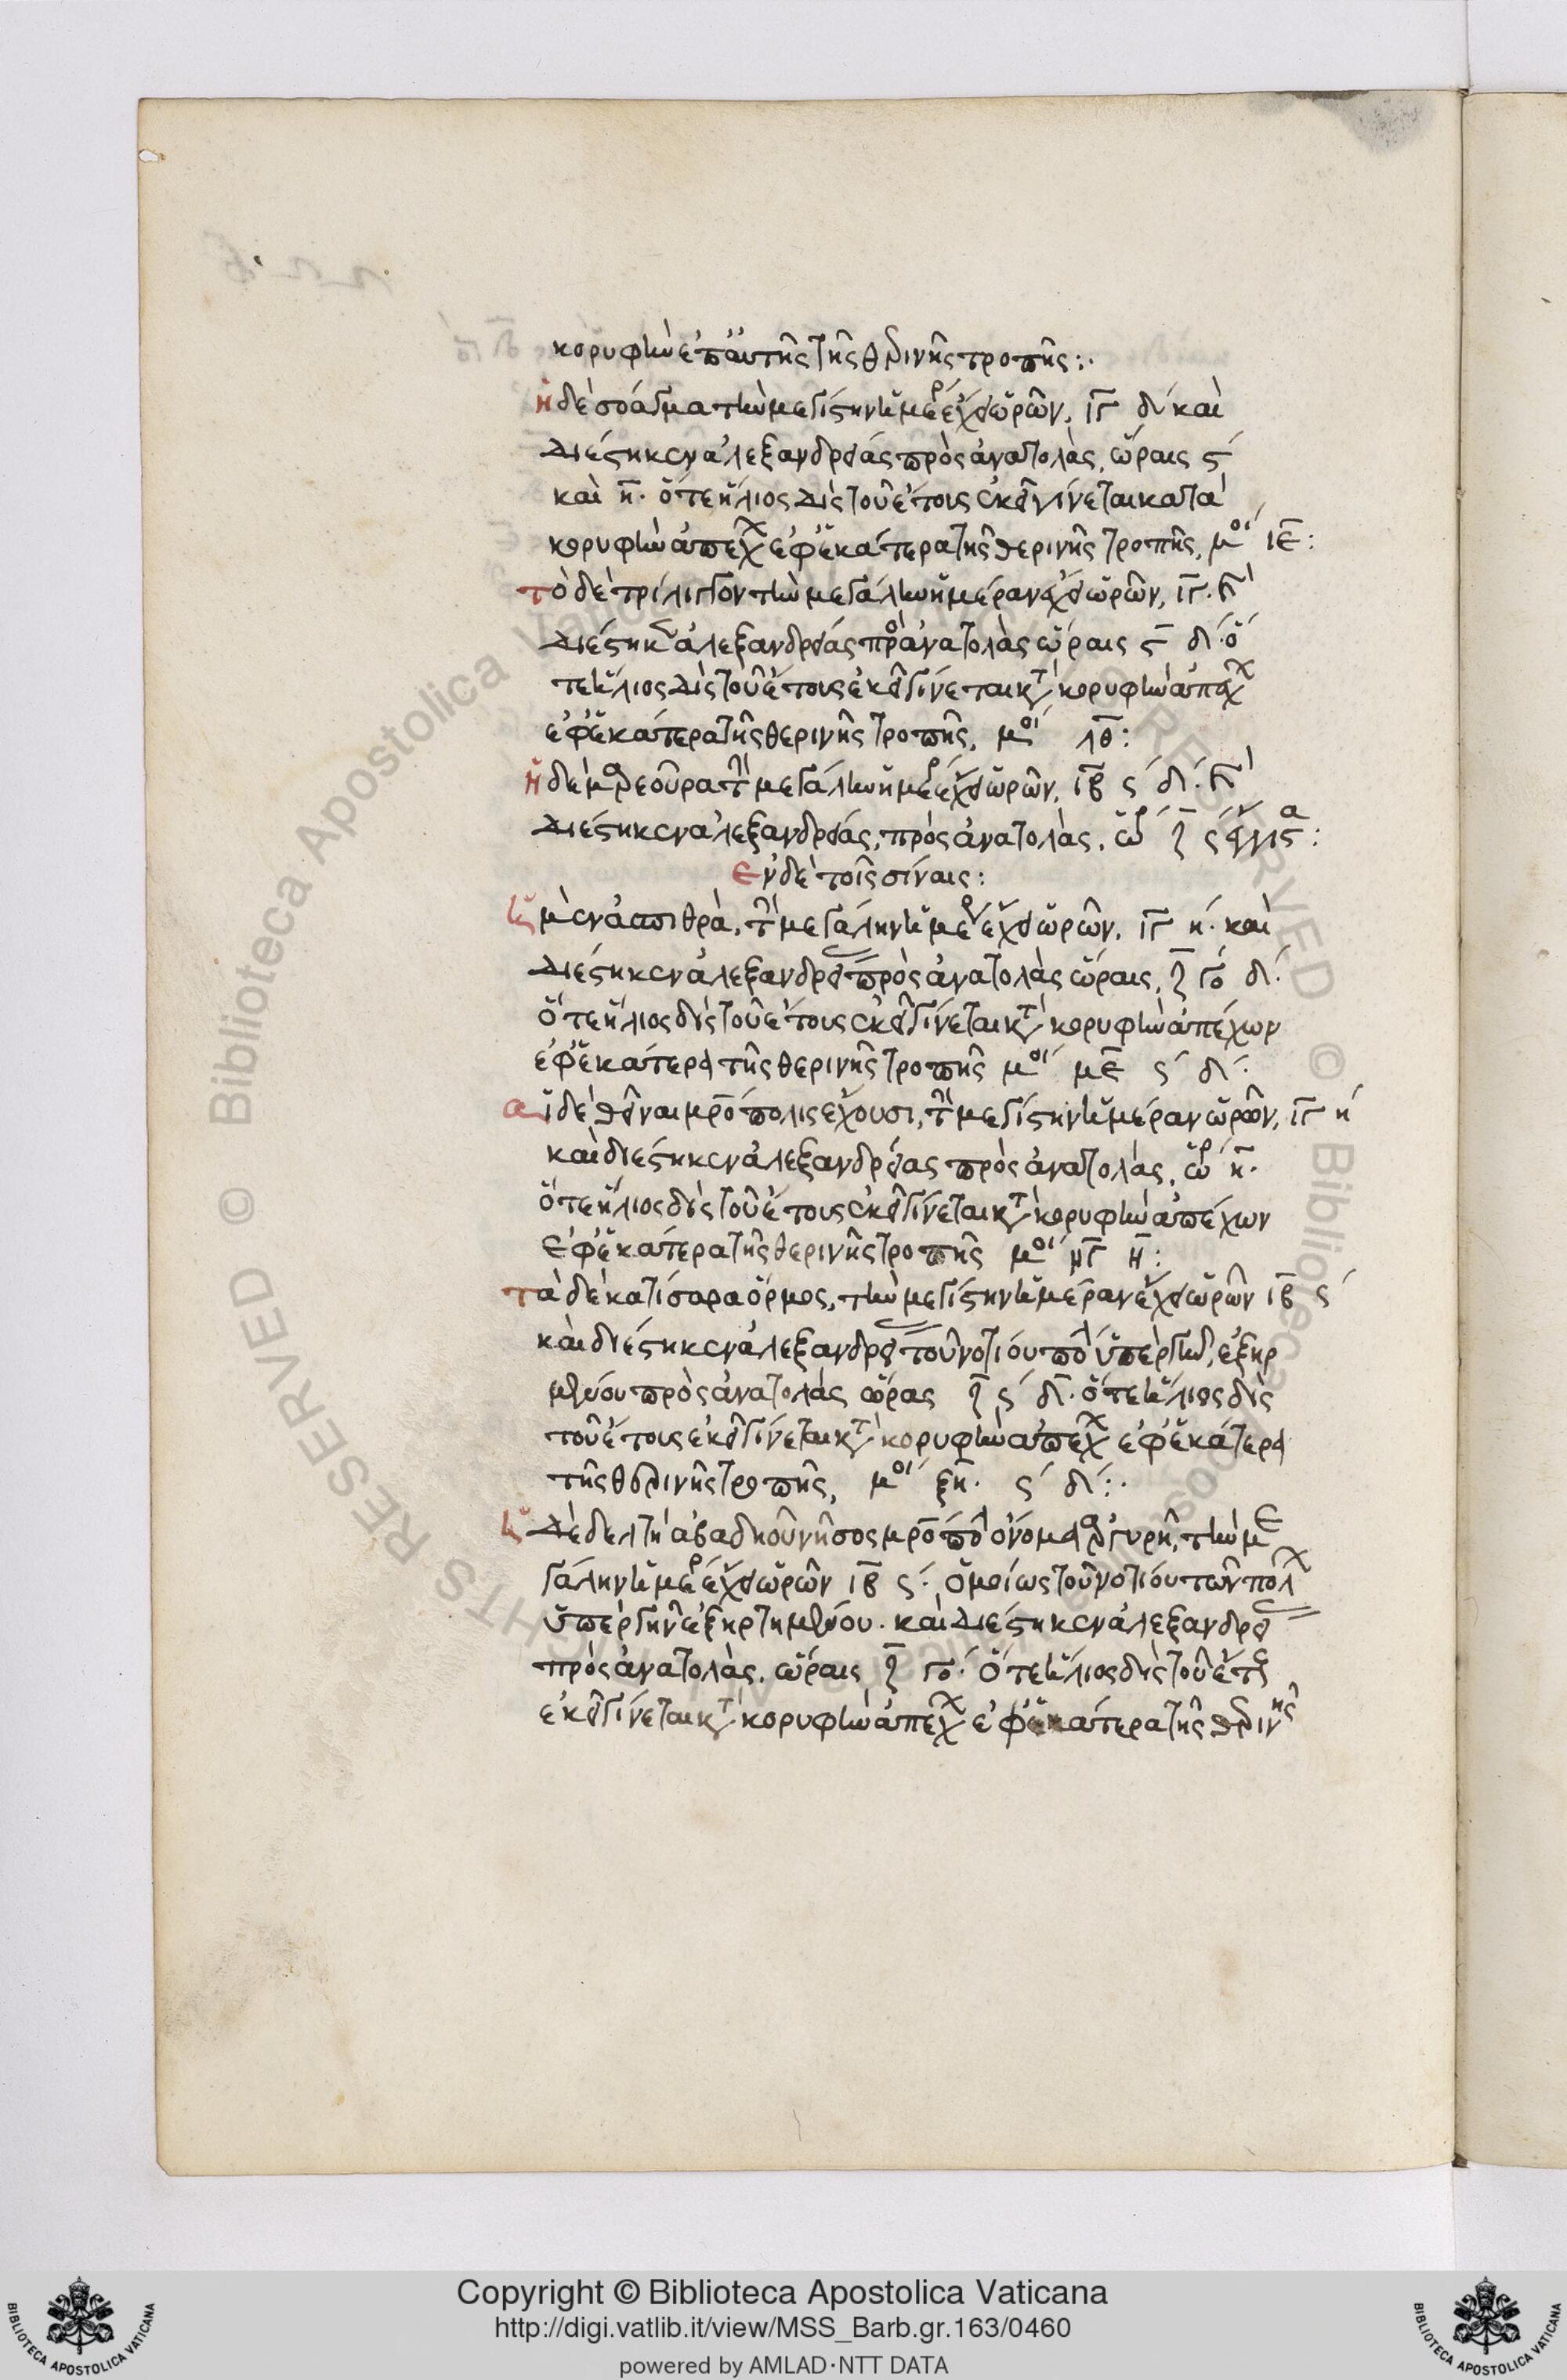 κορυφὴν ἐπ' αὐτῆς τῆς θερινῆς τροπῆς:·
ἡ δὲ σπάγμα τὴν μεγίστην ἡμερ ἔχει ὡρῶν, ιγ δ καὶ
διέστηκεν ἀλεξανδρείας πρὸς ἀνατολὰς, ὥραις ϛ
καὶ η· ὅτε ἥλιος δὶς τοῦ ἔτους ἐκεῖ γίνεται κατὰ
κορυφὴν ἀπέχ ἐφ' ἑκάτερα τῆς θερινῆς τροπῆς, μοι ιε:
τὸ δὲ τρίλιγγον τὴν μεγάλην ἡμέραν ἔχει ὡρῶν, ιγ.
διέστηκεν ἀλεξανδρείας πρὸ ἀνατολὰς ὥραις ϛ δ· ὅ
τε ἥλιος δὶς τοῦ ἔτους ἐκεῖ γίνεται κατ κορυφὴν ἀπέχ
ἐφ' ἑκάτερα τῆς θερινῆς τροπῆς, μοι λθ:
ἡ δὲ μαρεοῦρα τὴν μεγάλην ἡμερ ἔχει ὡρῶν, ιβ ς δ.
διέστηκεν ἀλεξανδρείας, πρὸς ἀνατολὰς, ὡρ ζ
Ἐν δὲ τοῖς σίναις:
ἡ μὲν ἀσπιθρὰ, τὴν μεγάλην ἡμερ ἔχει ὡρῶν, ιγ η· καὶ
διέστηκεν ἀλεξανδρεί πρὸς ἀνατολὰς ὥραις, ζ γο δ·
ὅτε ἥλιος δὶς τοῦ ἔτους ἐκεῖ γίνεται κατ κορυφὴν ἀπέχων
ἐφ' ἑκάτερα τῆς θερινῆς τροπῆς μοι με ς δ:
αἱ δὲ θεῖναι μρο πολις ἔχουσι, τὴν μεγίστην ἡμέραν ὡρῶν, ιγ η
καὶ διέστηκεν ἀλεξανδρείας πρὸς ἀνατολάς, ὡρ η·
ὅτε ἥλιος δὶς τοῦ ἔτους ἐκεῖ γίνεται κατ κορυφὴν ἀπέχων
ἐφ' ἑκάτερα τῆς θερινῆς τροπῆς μοι μγ η:
τὰ δὲ κατίσαρα ὅρμος, τὴν μεγίστην ἡμέραν ἔχει ὡρῶν ιβ ς
καὶ διέστηκεν ἀλεξανδρεί τοῦ νοτίου πολ ὑπὲρ γῆν, ἐξηρ
μένου πρὸς ἀνατολὰς ὥρας ζ ς δ· ὅτε ἥλιος δὶς
τοῦ ἔτους ἐκεῖ γίνεται κατ κορυφὴν ἀπέχ ἐφ' ἑκάτερα
τῆς θερινῆς τροπῆς, μοι ξη· ς δ:·
ἡ δὲ δελτη ἀβαδηοῦ νῆσος μρο πολ ὄνομα ἀργυρῆ, τὴν με
γάλην ἡμερ ἔχει ὡρῶν ιβ ς· ὁμοίως τοῦ νοτίου τῶν πολ
ὑπὲρ γῆν ἐξηρτημένου· καὶ διέστηκεν ἀλεξανδρεί
πρὸς ἀνατολὰς, ὥραις ζ γο· ὅτε ἥλιος δὶς τοῦ ἔτους
ἐκεῖ γίνεται κατ κορυφὴν ἀπέχ ἐφ' ἑκάτερα τῆς θερινῆς
Copyright © Biblioteca Apostolica Vaticana
http://digi.vatlib.it/view/MSS_Barb.gr.163/0460
powered by AMLAD·NTT DATA